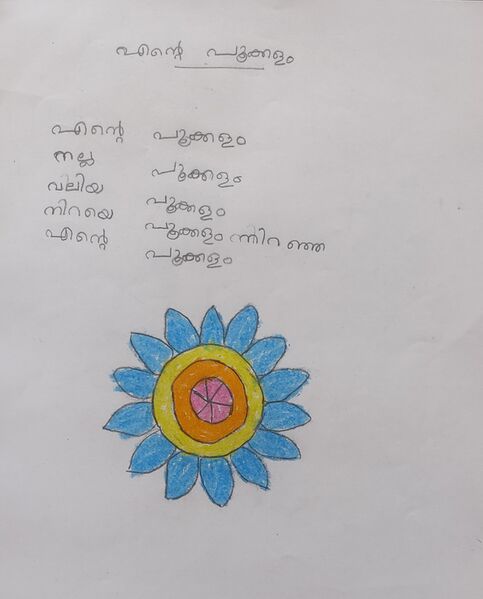 എന്റെ പൂക്കളം
എന്റെ പൂക്കളം
നല്ല പൂക്കളം
വലിയ പൂക്കളം
നിറയെ പൂക്കളം ന്നിറ ഞ്ഞ
എന്റെ പൂക്കളം